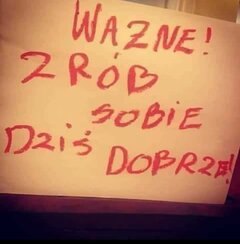 WAŻNE!
ZRÓB
SOBIE
DZIŚ DOBRZE!